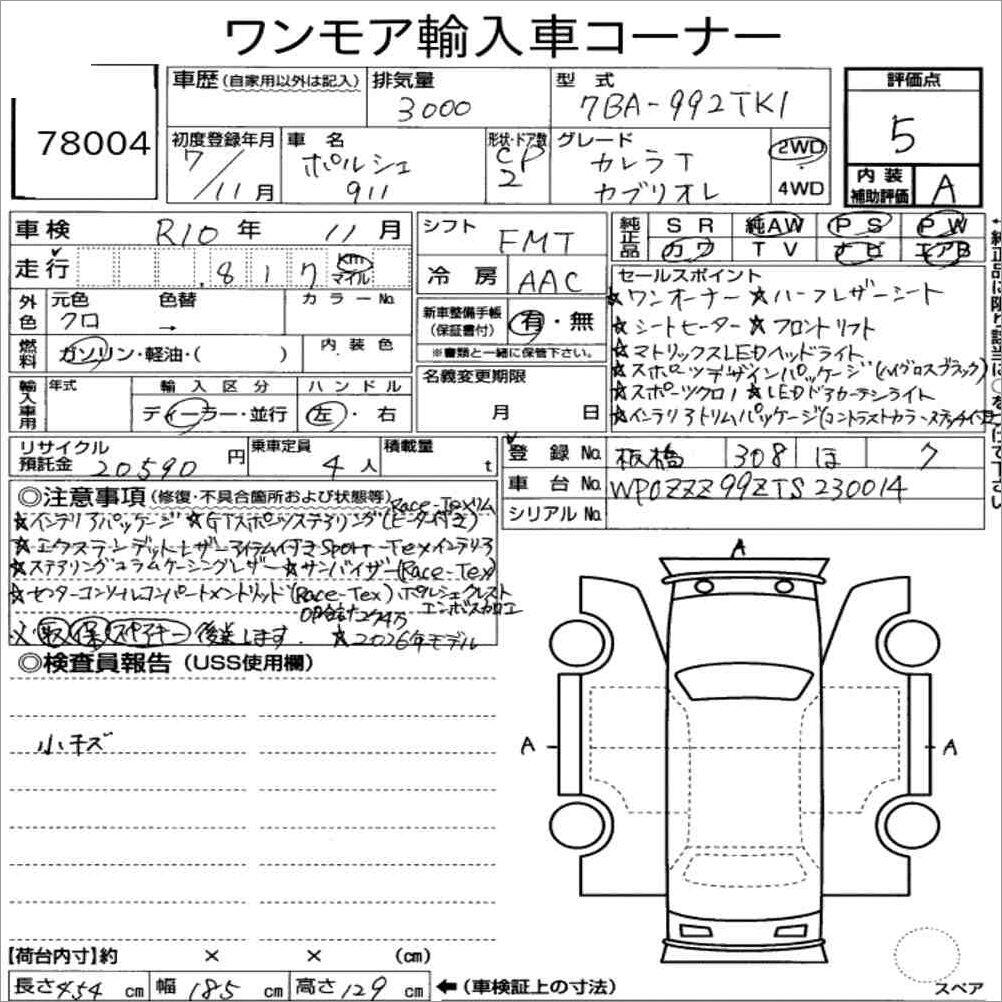 ワンモア輸入車コーナー
78004
車歴（自家用以外は記入）
排気量
3000
型式
7BA-992TK1
評価点
5
初度登録年月
7/11月
車名
ポルシェ
911
形状・ドア数
CP
2
グレード
カレラT
カブリオレ
2WD
4WD
内装
補助評価
A
車検 R10年 11月
走行 .817 km
マイル
シフト FMT
冷房 AAC
純正品
SR 純AW PS PW
カワ TV ナビ エアB
外色
元色 色替 カラーNo
クロ →
内装色
燃料
ガソリン・軽油・（ ）
新車整備手帳
（保証書付） 有・無
※書類と一緒に保管下さい。
名義変更期限
月 日
セールスポイント
☆ワンオーナー☆ハーフレザーシート
☆シートヒーター☆フロントリフト
☆マトリックスLEDヘッドライト
☆スポーツデザインパッケージ(ハイグロスブラック)
☆スポーツクロノ☆LEDドアカーテシライト
☆インテリアトリムパッケージ(コントラストカラーステッチ付き)
輸入車用
年式
輸入区分
ディーラー・並行
ハンドル
左・右
リサイクル
預託金 20590円
乗車定員
4人
積載量
t
登録No. 板橋 308 ほ 7
車台No. WP0ZZZ99ZTS230014
シリアルNo.
◎注意事項（修復・不具合箇所および状態等）
Race-Texリム
☆インテリアパッケージ☆GTスポーツステアリング(ヒーター付き)
☆エクステンデットレザーアイテム付きSport-Texインテリア
☆ステアリングコラムケーシングレザー☆サンバイザー(Race-Tex)
☆センターコンソールコンパートメントリッド(Race-Tex)、ポルシェクレスト
エンボス加工
OP合計274万
※取保スペアキー後送します。 ☆2026年モデル
◎検査員報告（USS使用欄）
小キズ
A
A
A
【荷台内寸】約 × × （cm）
長さ454cm 幅185cm 高さ129cm ←（車検証上の寸法）
スペア